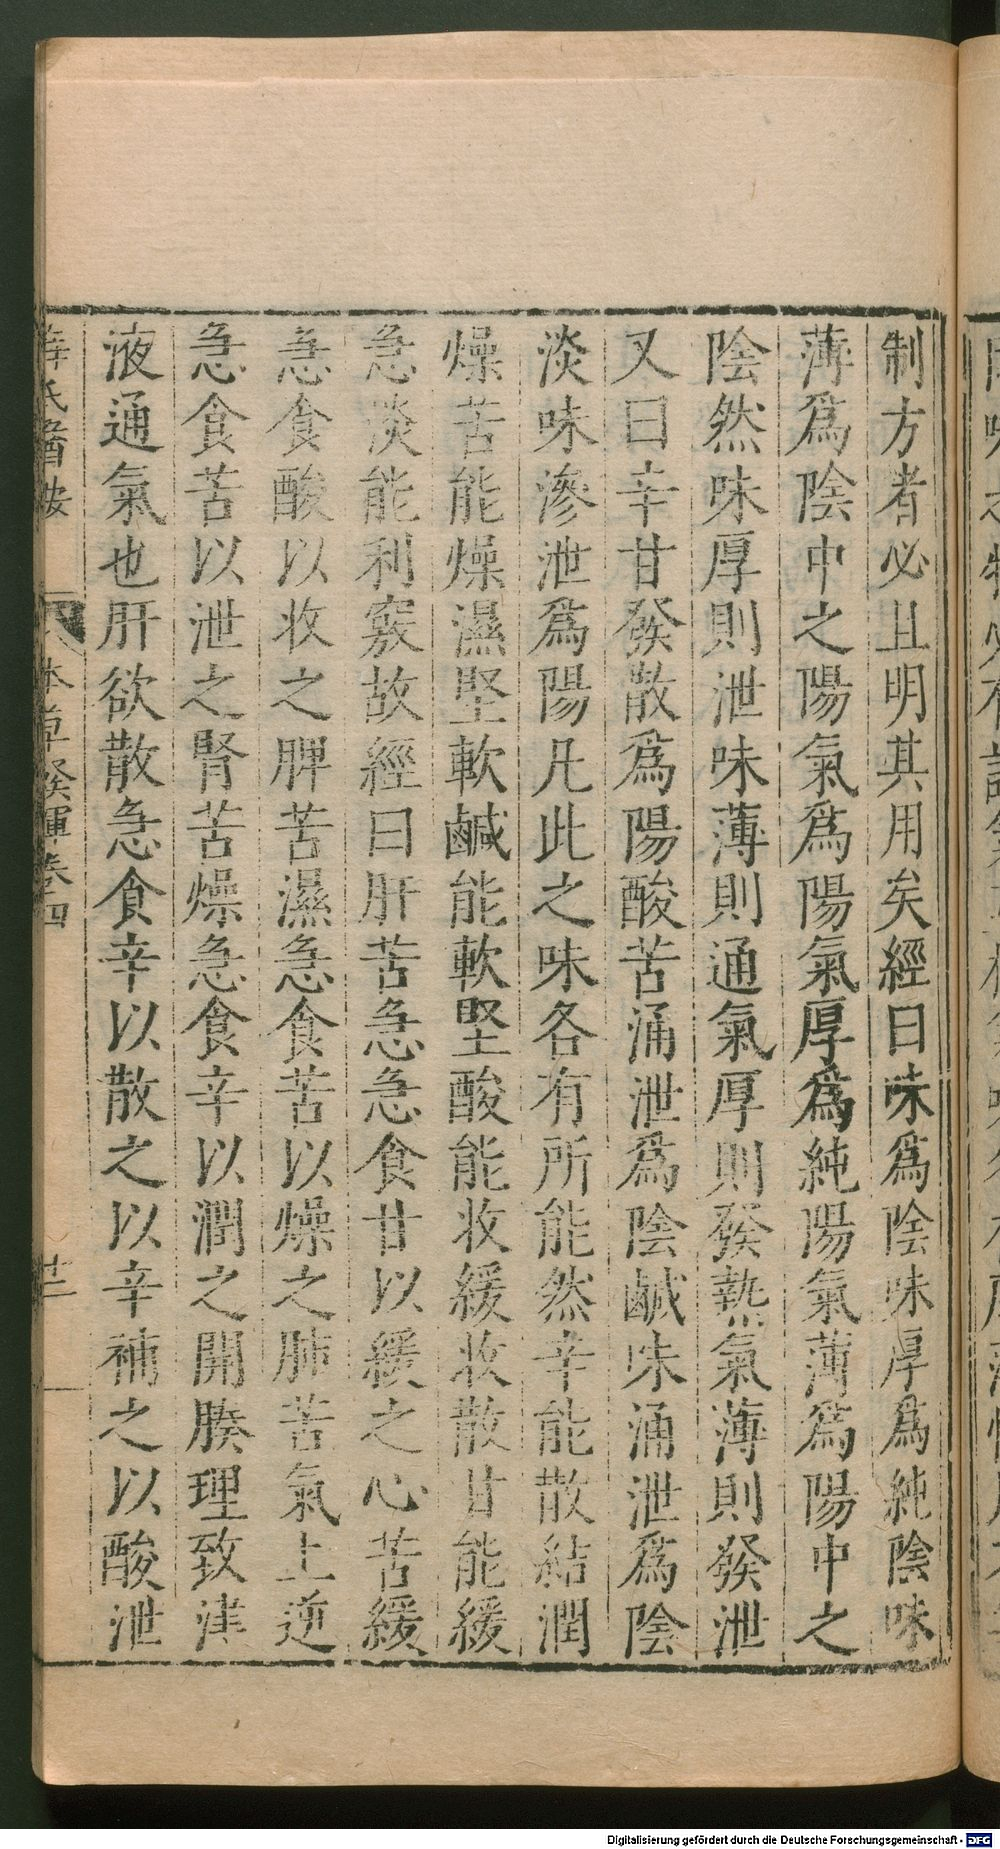 制方者必且明其用矣經曰味爲陰味厚爲純陰味
薄爲陰中之陽氣爲陽氣厚爲純陽氣薄爲陽中之
陰然味厚則泄味薄則通氣厚則發熱氣薄則發泄
又曰辛甘發散爲陽酸苦涌泄爲陰鹹味涌泄爲陰
淡味滲泄爲陽凡此之味各有所能然辛能散結潤
燥苦能燥濕堅軟鹹能軟堅酸能收緩收散甘能緩
急淡能利竅故經曰肝苦急急食甘以緩之心苦緩
急食酸以收之脾苦濕急食苦以燥之肺苦氣上逆
急食苦以泄之腎苦燥急食辛以潤之開腠理致津
液通氣也肝欲散急食辛以散之以辛補之以酸泄
氏醫按 本草發揮卷四 廿二
Digitalisierung gefördert durch die Deutsche Forschungsgemeinschaft - DFG